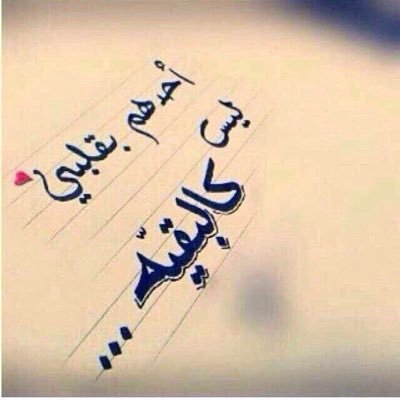 أحدهم بقلبي
ليس
كالبقيّه ...